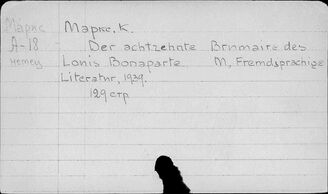 Маркс
Маркс, К.
А-18
Der achtzehnte Brumaire des
немец
Louis Bonaparte М, Fremdsprachige
Literatur, 1939.
129 стр